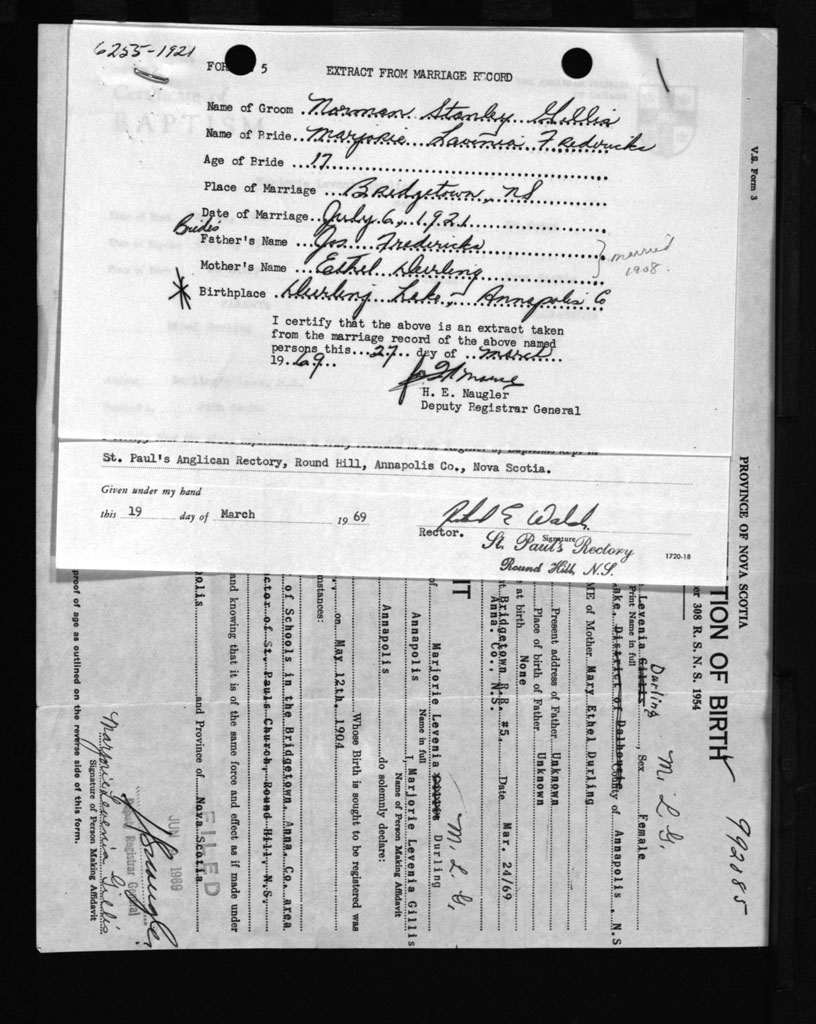 6255-1921
FOR 5
EXTRACT FROM MARRIAGE RECORD
Name of Groom Norman Stanley Gillis
Name of Bride Marjorie Lavinia Fredericks
Age of Bride 17
Place of Marriage Bridgetown, NS
Date of Marriage July 6, 1921
Brides
Father's Name Jos Fredericks
Mother's Name Ethel Durling
married
1908.
Birthplace Durling Lake, - Annapolis Co
I certify that the above is an extract taken
from the marriage record of the above named
persons this 27 day of March
19 69
H. E. Naugler
Deputy Registrar General
St. Paul's Anglican Rectory, Round Hill, Annapolis Co., Nova Scotia.
Given under my hand
this 19 day of March 1969
Rector.
Signature
St. Paul's Rectory
Round Hill, N.S.
1720-18
V.S. Form 3
PROVINCE OF NOVA SCOTIA
TION OF BIRTH
er 308 R. S. N. S. 1954
992085
M. L. G.
Durling
Levenia Gillis, Sex Female
Print Name in full
ake, District of Dalhousie County of Annapolis, N.S
ME of Mother Mary Ethel Durling
Present address of Father Unknown
Place of birth of Father Unknown
at birth None
t Bridgetown R.R. #5, Date Mar. 24/69
Anna. Co., N.S.
IT
M. L. G.
of Marjorie Levenia Durling
Name in full
Annapolis I, Marjorie Levenia Gillis
Name of Person Making Affidavit
Annapolis do solemnly declare:
Whose Birth is sought to be registered was
on May 12th, 1904
mstances:
of Schools in the Bridgetown, Anna. Co. area
ctor of St. Pauls Church, Round Hill, N.S.
and knowing that it is of the same force and effect as if made under
polis and Province of Nova Scotia
FILED
JUN 1969
Deputy Registrar General
Marjorie Levenia Gillis
Signature of Person Making Affidavit
proof of age as outlined on the reverse side of this form.